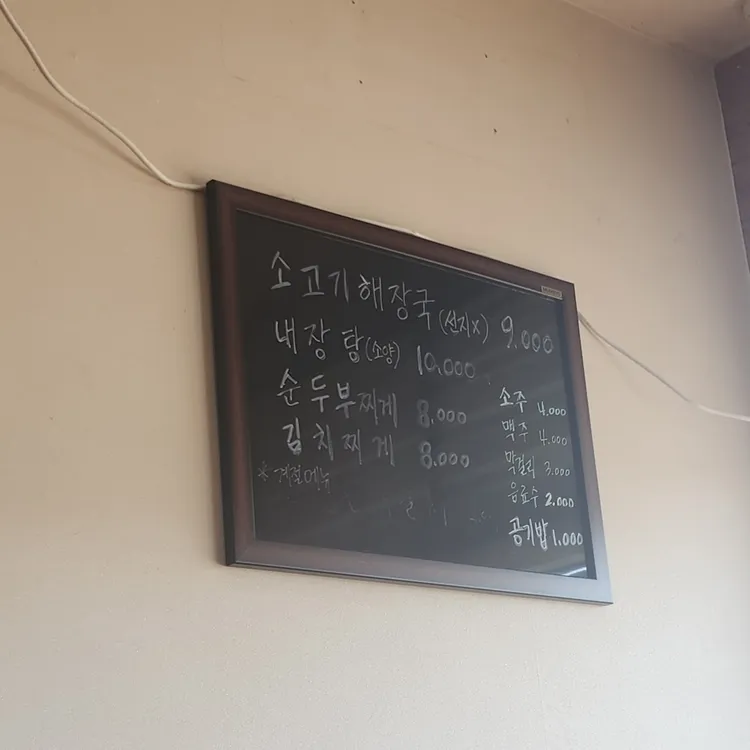 소고기해장국(선지x) 9.000
내장탕(소양) 10.000
순두부찌게 8.000
김치찌게 8.000
*계절메뉴
소주 4.000
맥주 4.000
막걸리 3.000
음료수 2.000
공기밥 1.000